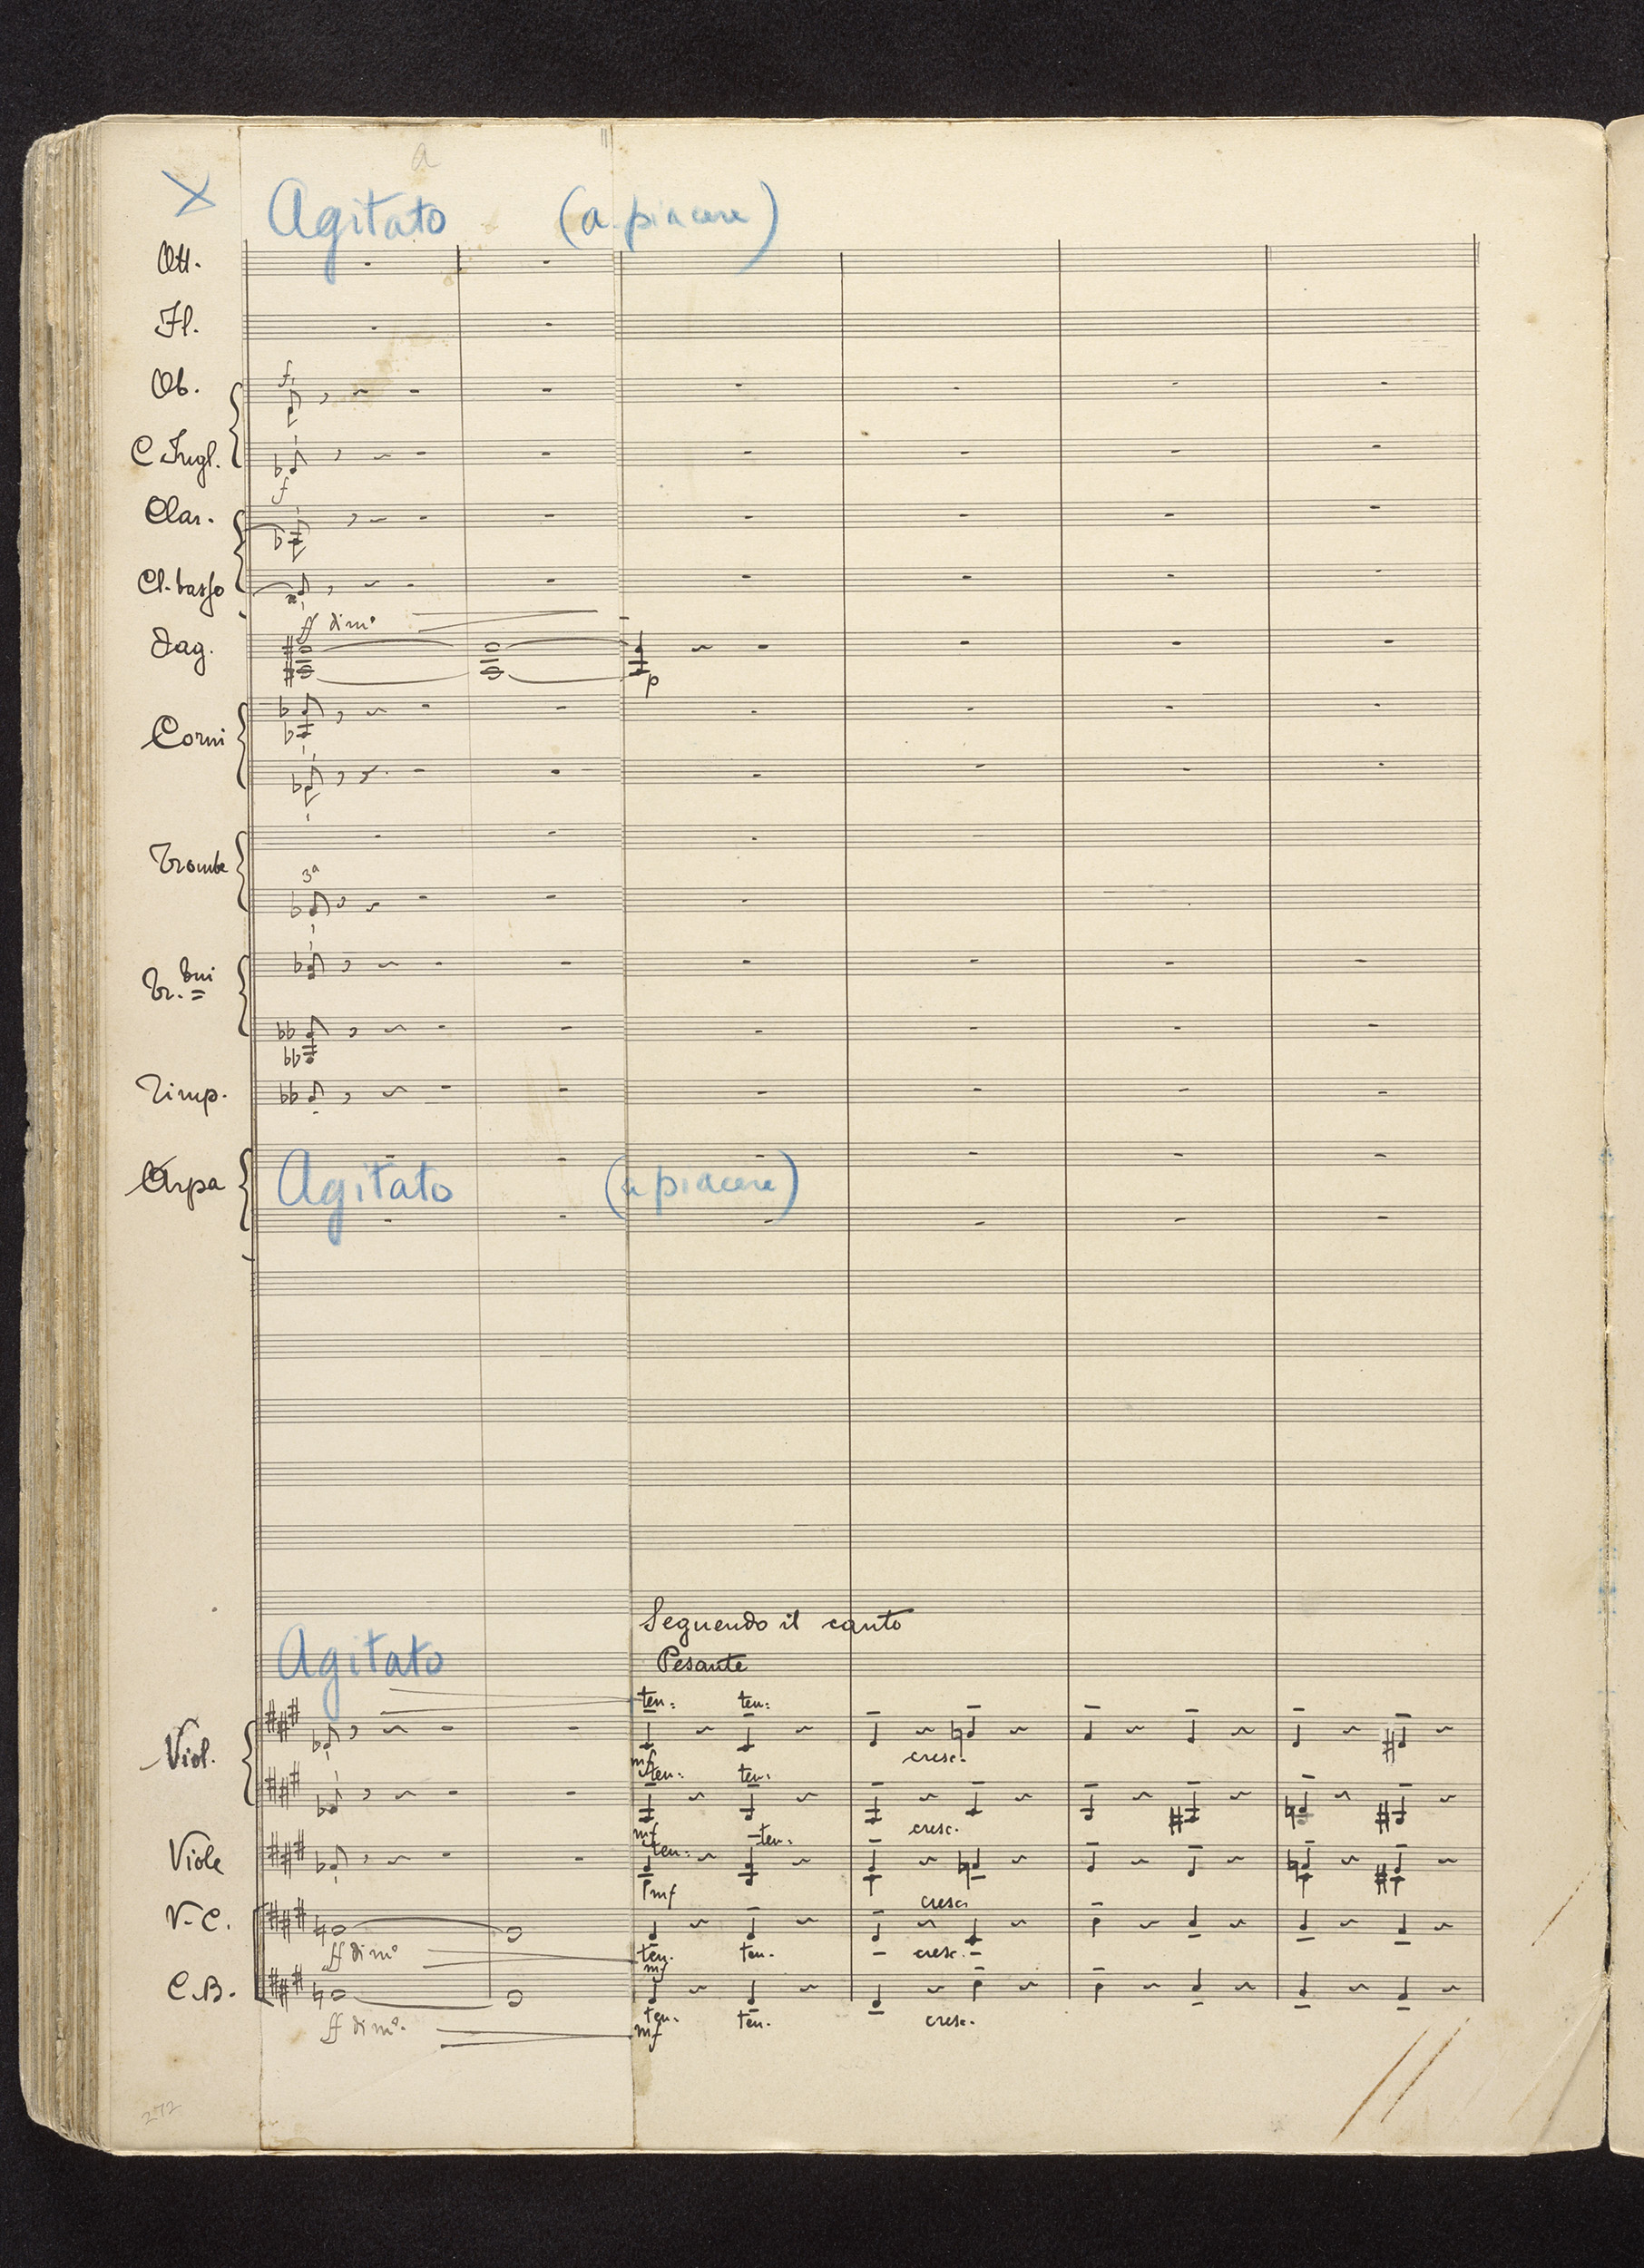 a
Agitato (a piacere)
Ott.
Fl.
Ob. f
C Ingl.
f
Clar.
Cl. basso
ff dimo
Fag.
p
Corni
Trombe
3a
Tr.bni
Timp.
Arpa Agitato (a piacere)
Seguendo il canto
Agitato Pesante
ten: ten:
Viol.
mf cresc.
ten: ten:
mf cresc.
ten: ten:
Viole
mf
cresc.
V-C.
ff dimo ten. ten. cresc.
mf
C.B.
ff dimo. ten. ten. cresc.
mf
272